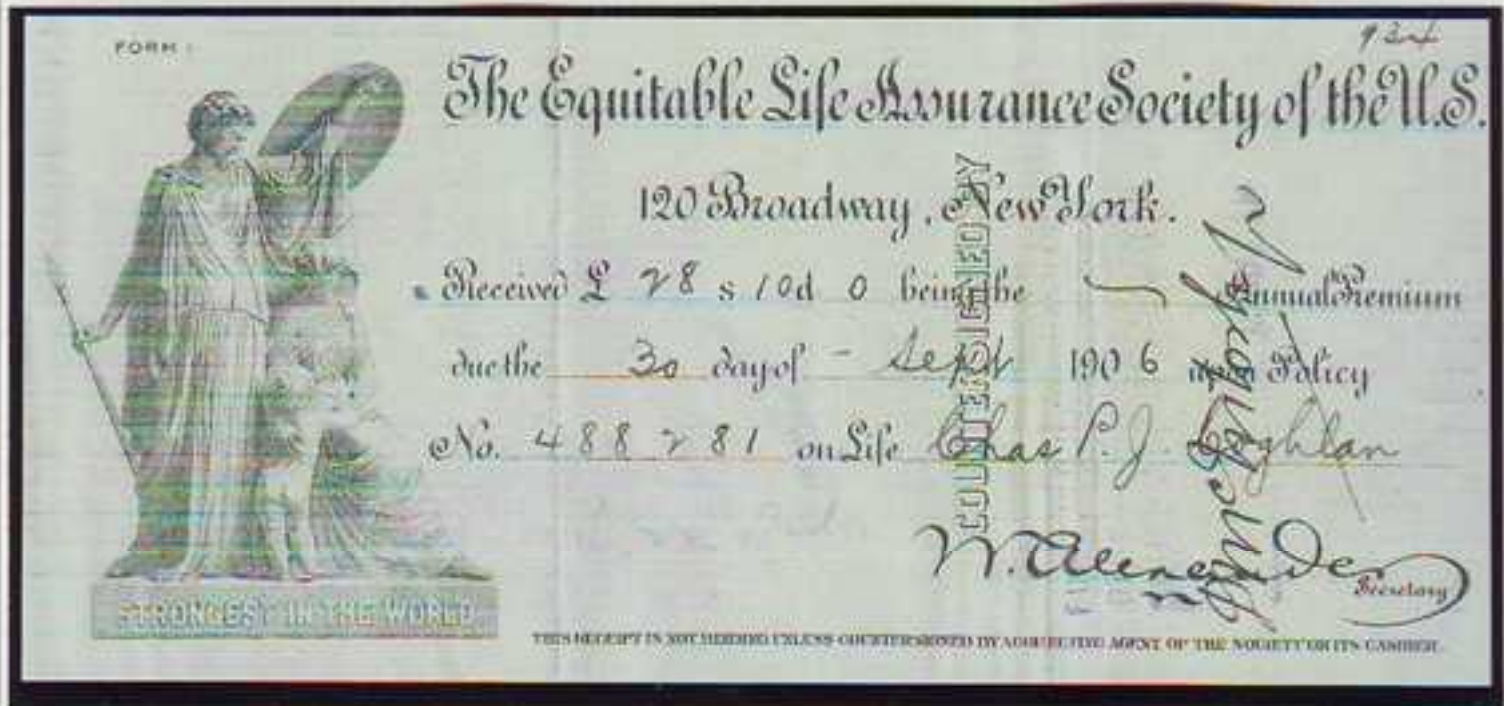 FORM 1
The Equitable Life Assurance Society of the U.S.
120 Broadway, New York.
Received £ 28 s 10 d 0 being the Annual Premium
due the 30 day of - Sept 1906 upon Policy
No. 488281 on Life Chas P. J. Coghlan
COUNTERSIGNED BY
W. Alexander
Secretary
STRONGEST IN THE WORLD
THIS RECEIPT IS NOT BINDING UNLESS COUNTERSIGNED BY A COLLECTING AGENT OF THE SOCIETY OR ITS CASHIER.